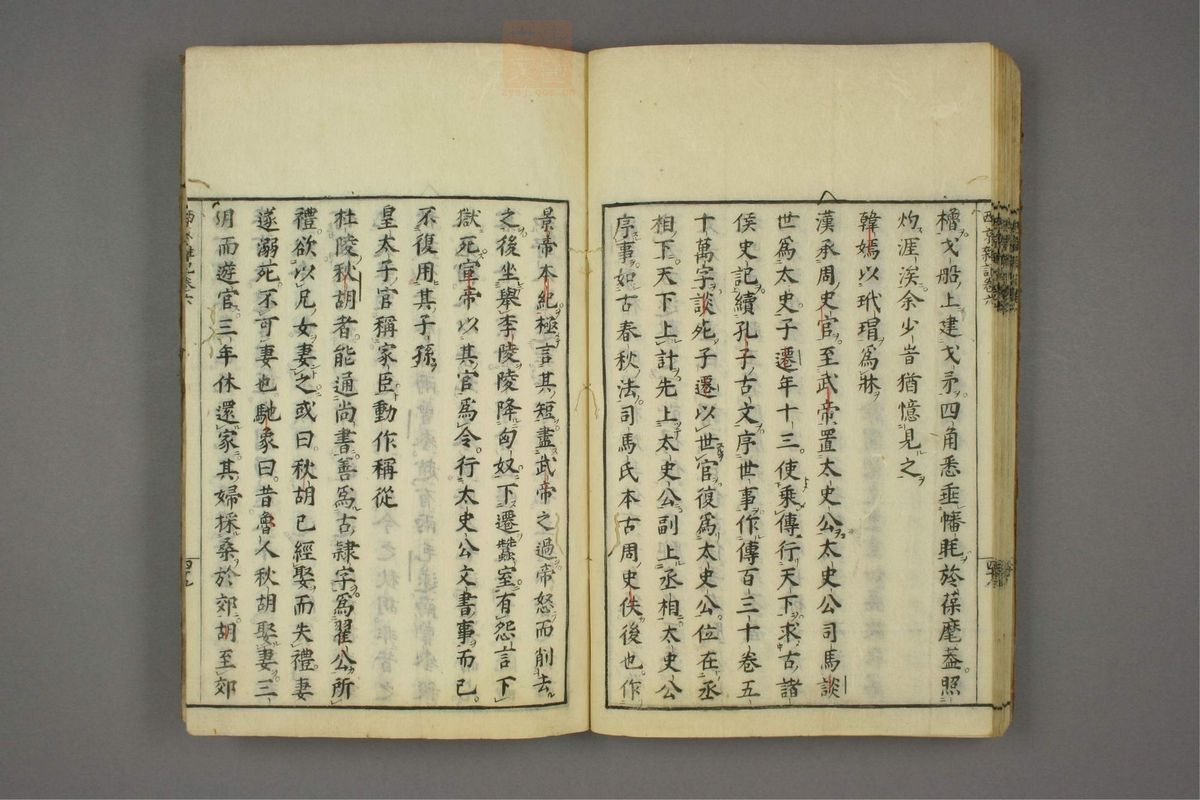 櫓戈船上建戈矛四角悉垂幡眊旍葆麾葢照
灼涯涘余少时猶憶見之
韓嫣以玳瑁爲牀
漢承周史官至武帝置太史公太史公司馬談
世爲太史子遷年十三使乘傳行天下求古諸
侯史記續孔子古文序世事作傳百三十卷五
十萬字談死子遷以世官復爲太史公位在丞
相下天下上計先上太史公副上丞相太史公
序事如古春秋法司馬氏本古周史佚後也作
景帝本紀極言其短盡武帝之過帝怒而削去
之後坐舉李陵陵降匈奴下遷蠶室有怨言下
獄死宣帝以其官爲令行太史公文書事而已
不復用其子孫
皇太子官稱家臣動作稱從
杜陵秋胡者能通尚書善爲古隸字爲翟公所
禮欲以兄女妻之或曰秋胡已經娶而失禮妻
遂溺死不可妻也馳象曰昔魯人秋胡娶妻三
月而遊官三年休還家其婦採桑於郊胡至郊